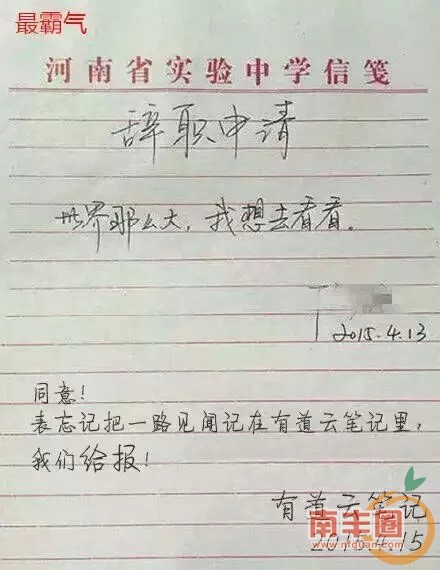 最霸气
河南省实验中学信笺
辞职申请
世界那么大，我想去看看。
2015.4.13
同意！
表忘记把一路见闻记在有道云笔记里，
我们给报！
有道云笔记
2015.4.15
南丰圈
www.nfquan.com